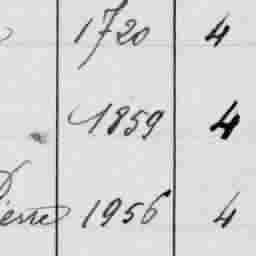 1720 4
1859 4
Pierre 1956 4